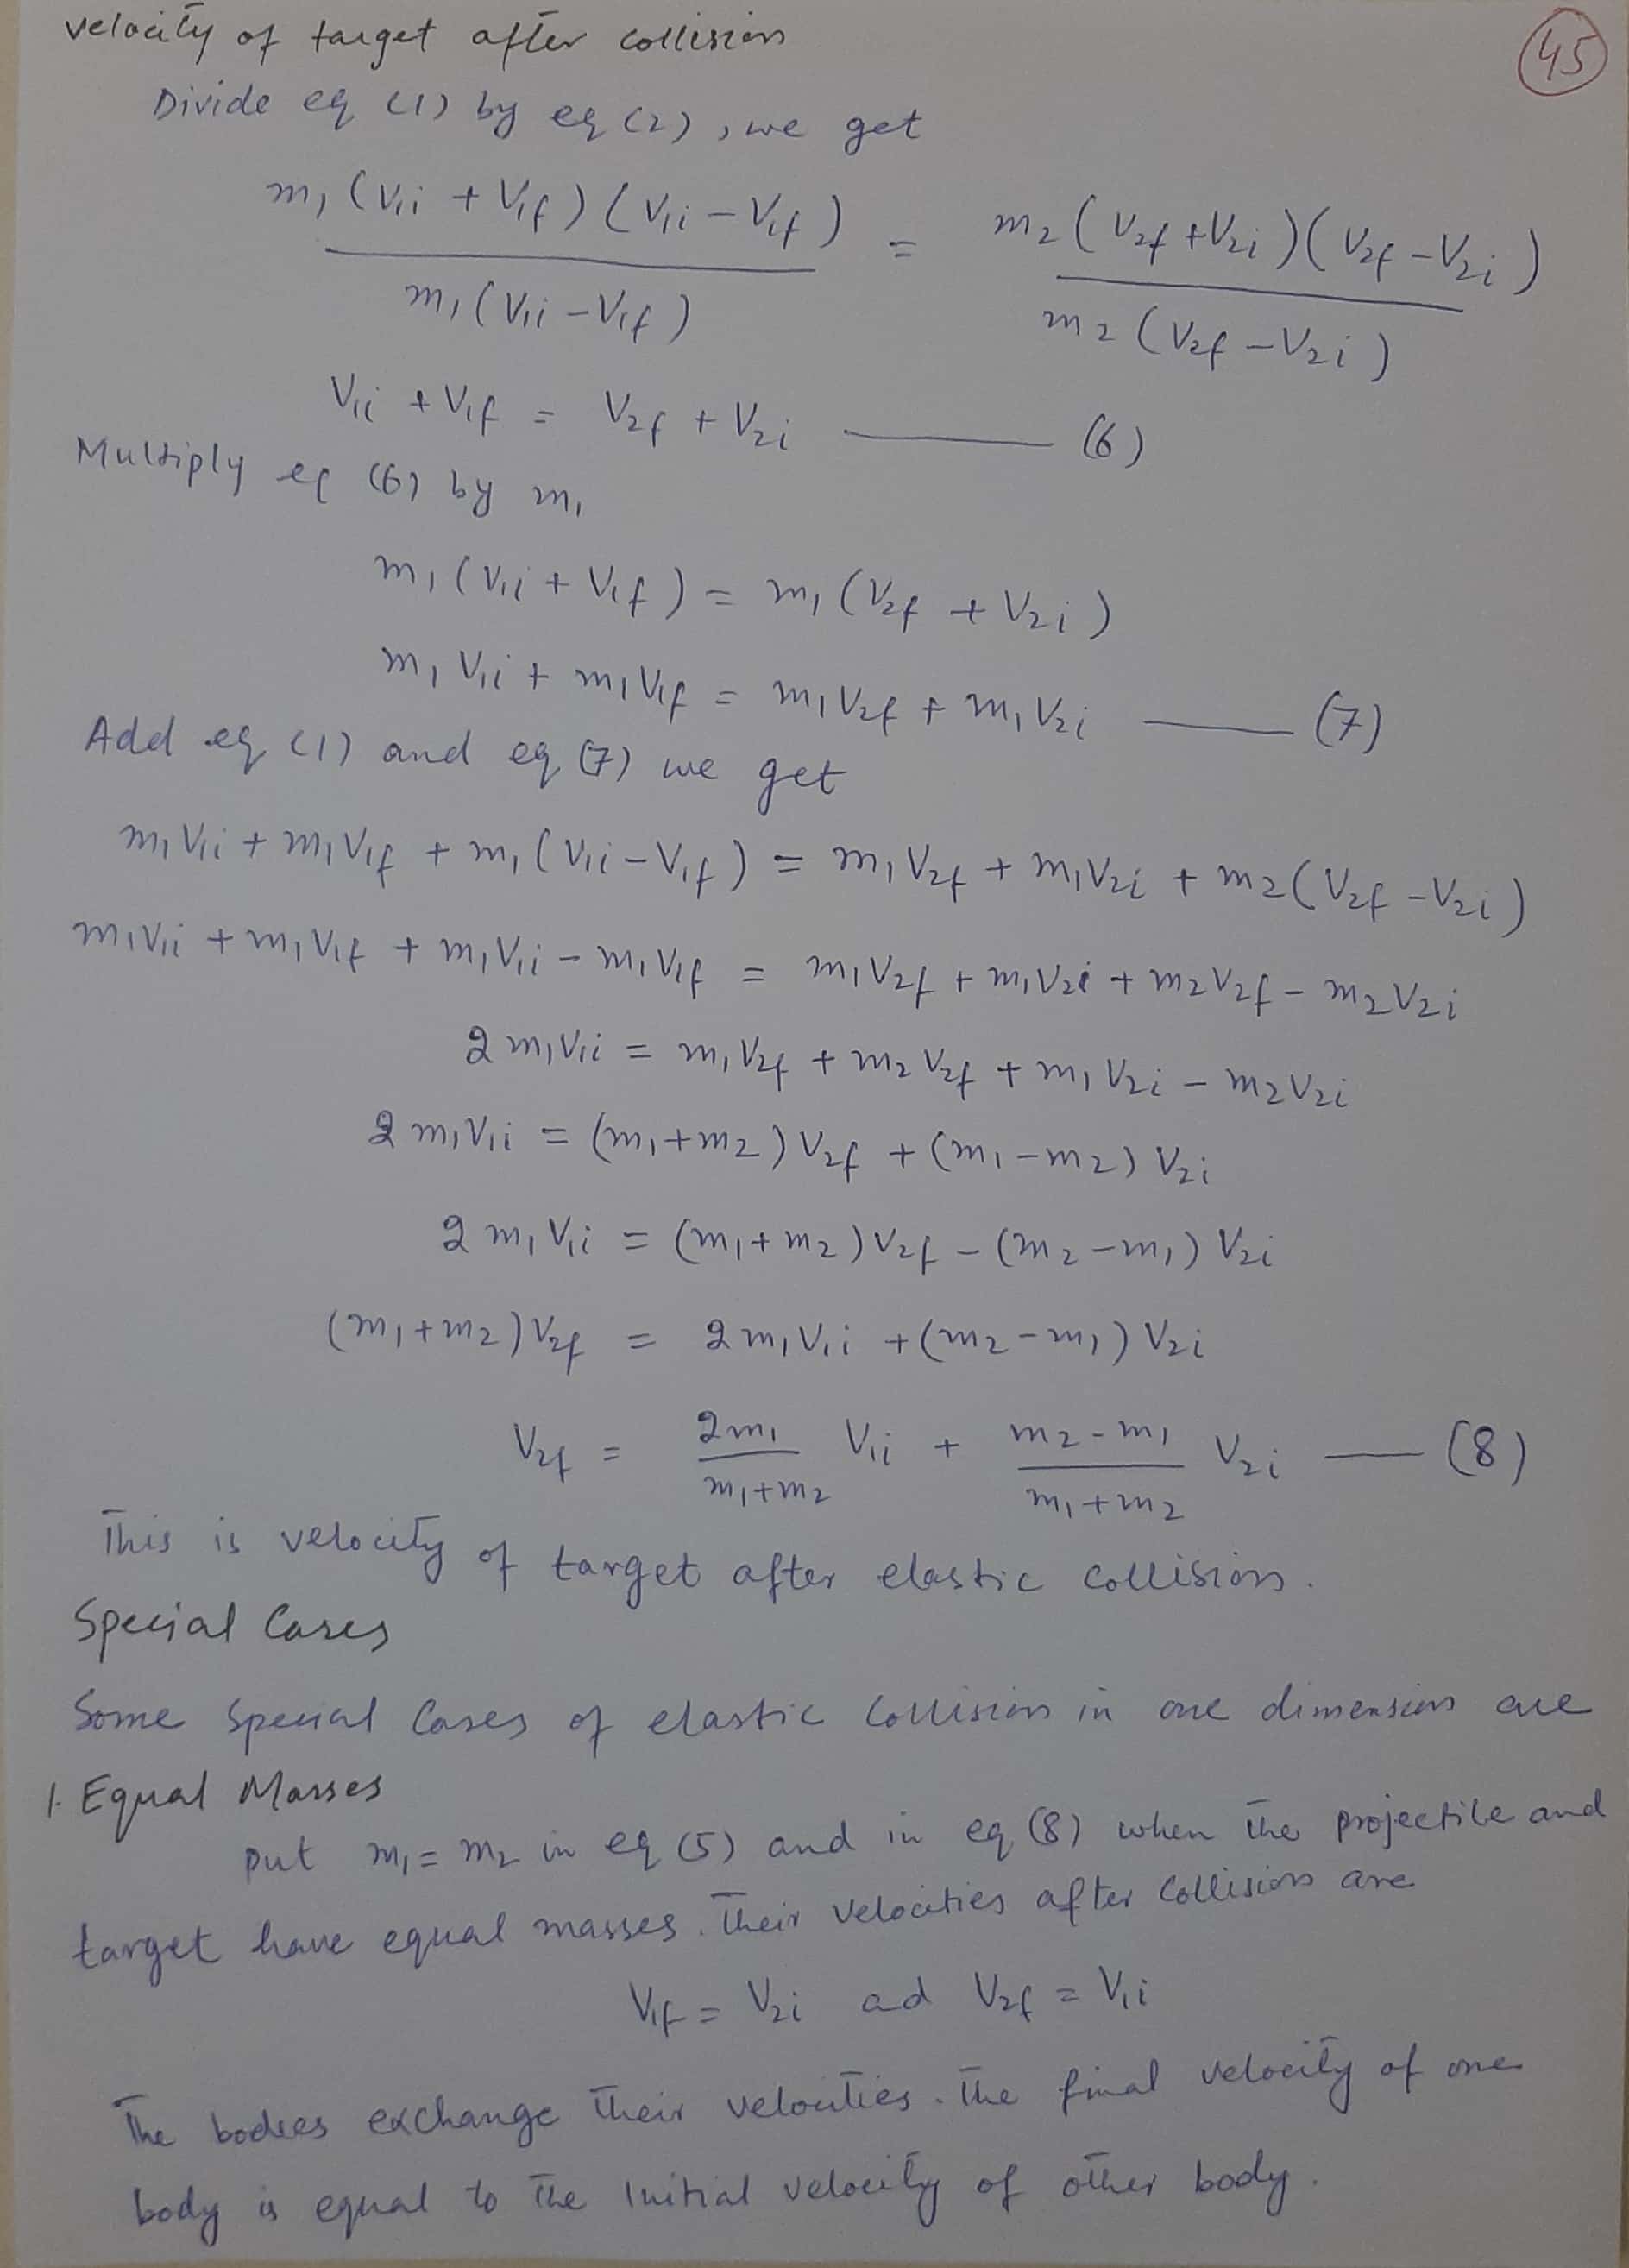 velocity of target after collision
45
Divide eq (1) by eq (2), we get
m₁(V₁i + V₁f)(V₁i − V₁f) / m₁(V₁i − V₁f) = m₂(V₂f + V₂i)(V₂f − V₂i) / m₂(V₂f − V₂i)
V₁i + V₁f = V₂f + V₂i —— (6)
Multiply eq (6) by m₁
m₁(V₁i + V₁f) = m₁(V₂f + V₂i)
m₁V₁i + m₁V₁f = m₁V₂f + m₁V₂i —— (7)
Add eq (1) and eq (7) we get
m₁V₁i + m₁V₁f + m₁(V₁i − V₁f) = m₁V₂f + m₁V₂i + m₂(V₂f − V₂i)
m₁V₁i + m₁V₁f + m₁V₁i − m₁V₁f = m₁V₂f + m₁V₂i + m₂V₂f − m₂V₂i
2m₁V₁i = m₁V₂f + m₂V₂f + m₁V₂i − m₂V₂i
2m₁V₁i = (m₁+m₂)V₂f + (m₁−m₂)V₂i
2m₁V₁i = (m₁+m₂)V₂f − (m₂−m₁)V₂i
(m₁+m₂)V₂f = 2m₁V₁i + (m₂−m₁)V₂i
V₂f = 2m₁/m₁+m₂ V₁i + m₂−m₁/m₁+m₂ V₂i — (8)
This is velocity of target after elastic collision.
Special Cases
Some special Cases of elastic Collision in one dimension are
1. Equal Masses
put m₁ = m₂ in eq (5) and in eq (8) when the projectile and
target have equal masses. Their velocities after Collision are
V₁f = V₂i ad V₂f = V₁i
The bodies exchange their velocities. The final velocity of one
body is equal to the Initial velocity of other body.